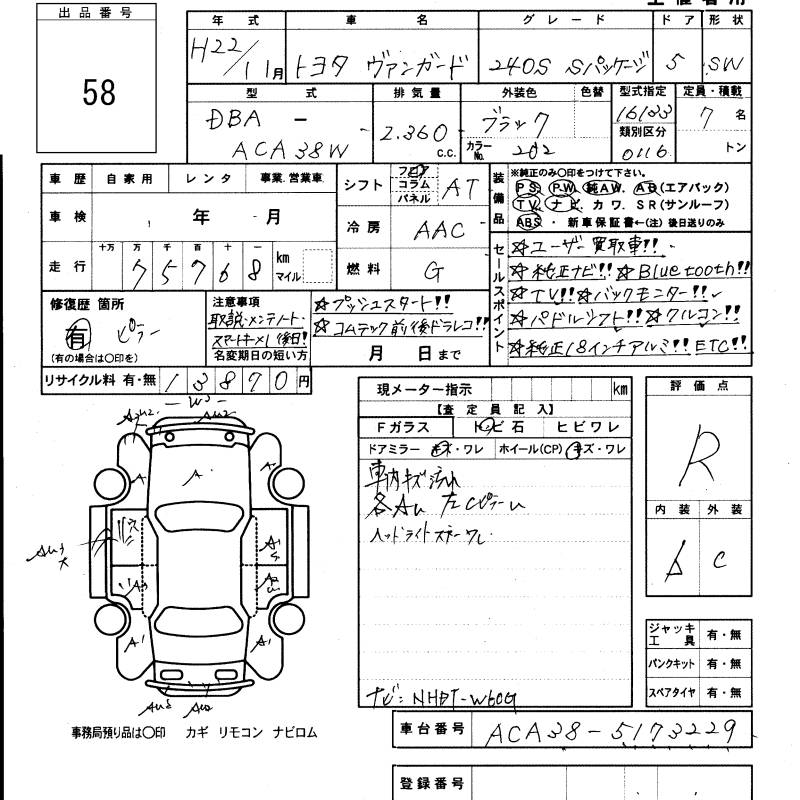 主催者用
出品番号
58
年式 車名 グレード ドア 形状
H22/11月 トヨタ ヴァンガード 240S Sパッケージ 5 SW
型式 排気量 外装色 色替 型式指定 定員・積載
DBA - ACA38W 2.360 c.c. ブラック 16133 7 名
カラーNo. 202 類別区分 0116 トン
車歴 自家用 レンタ 事業.営業車
シフト フロア コラム パネル AT
装備品 ※純正のみ○印をつけて下さい。
PS PW 純AW. AB(エアバック)
TV ナビ カワ. SR(サンルーフ)
ABS ・ 新車保証書←(注) 後日送りのみ
車検 年 月
冷房 AAC
走行 十万 万 千 百 十 一 km マイル
7 5 7 6 8
燃料 G
セールスポイント
☆ユーザー買取車!!
☆純正ナビ!! ☆Bluetooth!!
☆TV!! ☆バックモニター!!
☆パドルシフト!! ☆クルコン!!
☆純正18インチアルミ!! ETC!!
修復歴 箇所
有 ピラー
(有の場合は○印を)
注意事項
取説・メンテノート・
スマートキー×1 後日!
名変期日の短い方
☆プッシュスタート!!
☆コムテック前後ドラレコ!!
月 日まで
リサイクル料 有・無 13870 円
現メーター指示 km
【査定員記入】
Fガラス トビ石 ヒビワレ
ドアミラー キズ・ワレ ホイール(CP) キズ・ワレ
車内キズ汚れ
各AU 左Cピラーu
ヘッドライトステーワレ
ナビ:NHDT-W60G
評価点
R
内装 外装
b C
W3
AU2
AU2
A
A
A
A1
A1
AU3
AU2
ジャッキ工具 有・無
パンクキット 有・無
スペアタイヤ 有・無
事務局預り品は○印 カギ リモコン ナビロム
車台番号 ACA38-5173229
登録番号